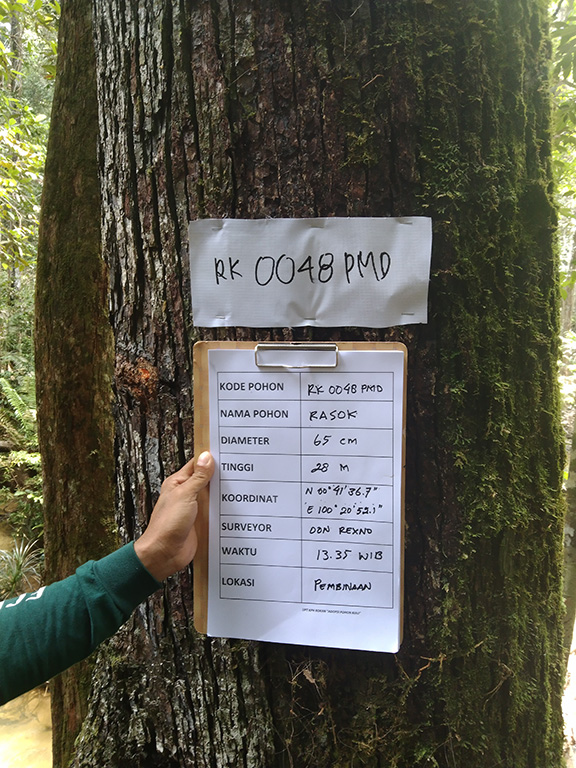 RK 0048 PMD
KODE POHON RK 0048 PMD
NAMA POHON RASOK
DIAMETER 65 cm
TINGGI 28 M
KOORDINAT N 00° 41' 36.7"
E 100° 20' 52.1"
SURVEYOR DON REXNO
WAKTU 13.35 WIB
LOKASI PEMBINAAN